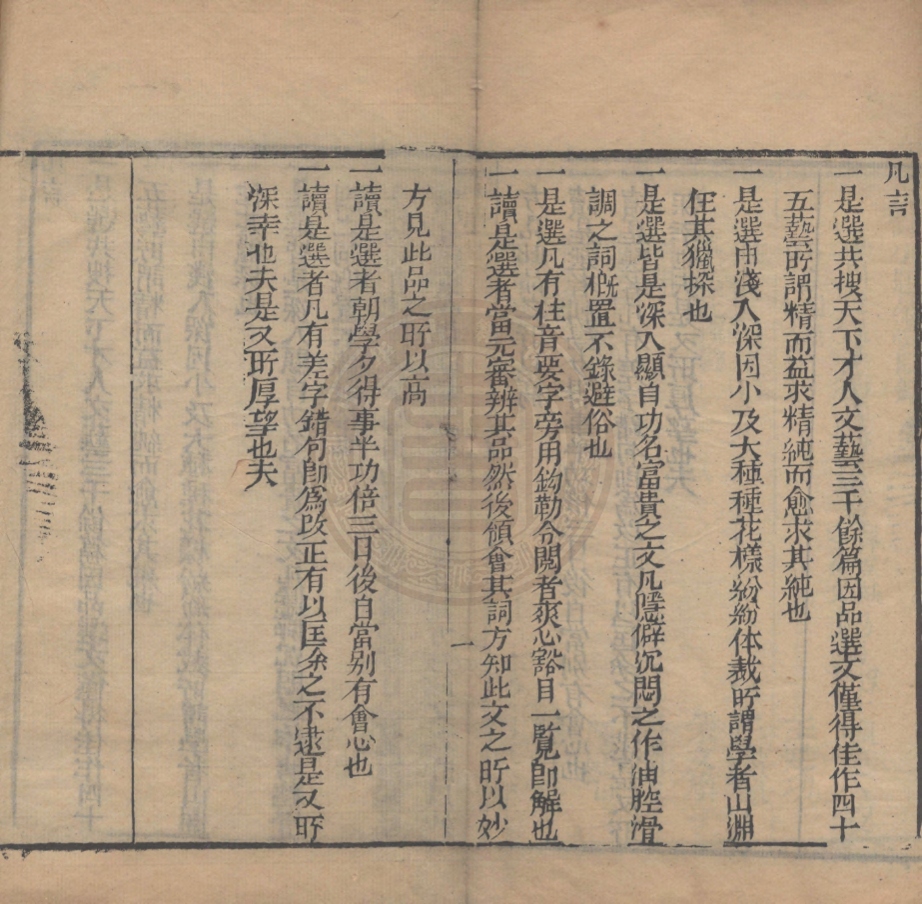 凡言
一是選共搜天下才人文藝三千餘篇因品選文僅得佳作四十
五藝所謂精而益求精純而愈求其純也
一是選由淺入深因小及大種種花樣紛紛体裁所謂學者山淵
任其獵採也
一是選皆是深入顯自功名富貴之文凡隱僻沉悶之作油腔滑
調之詞概置不錄避俗也
一是選凡有柱音要字旁用鈎勒令閱者爽心豁目一覽卽解也
一讀是選者當元審辨其品然後傾會其詞方知此文之所以妙
方見此品之所以高
一讀是選者朝學夕得事半功倍三日後自當别有會心也
一讀是選者凡有差字錯句卽為改正有以匡余之不逮是又所
深幸也夫是又所厚望也夫
一